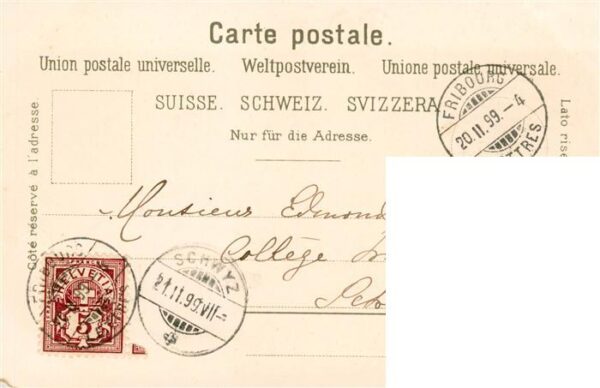 Carte postale.
Union postale universelle. Weltpostverein. Unione postale universale.
SUISSE. SCHWEIZ. SVIZZERA
Nur für die Adresse.
Côté réservé à l'adresse
Lato rise
FRIBOURG
20.11.99.-4
TTRES
Monsieur Edmond
Collège
SCHWYZ
21.11.99.VII-
HELVETIA
5